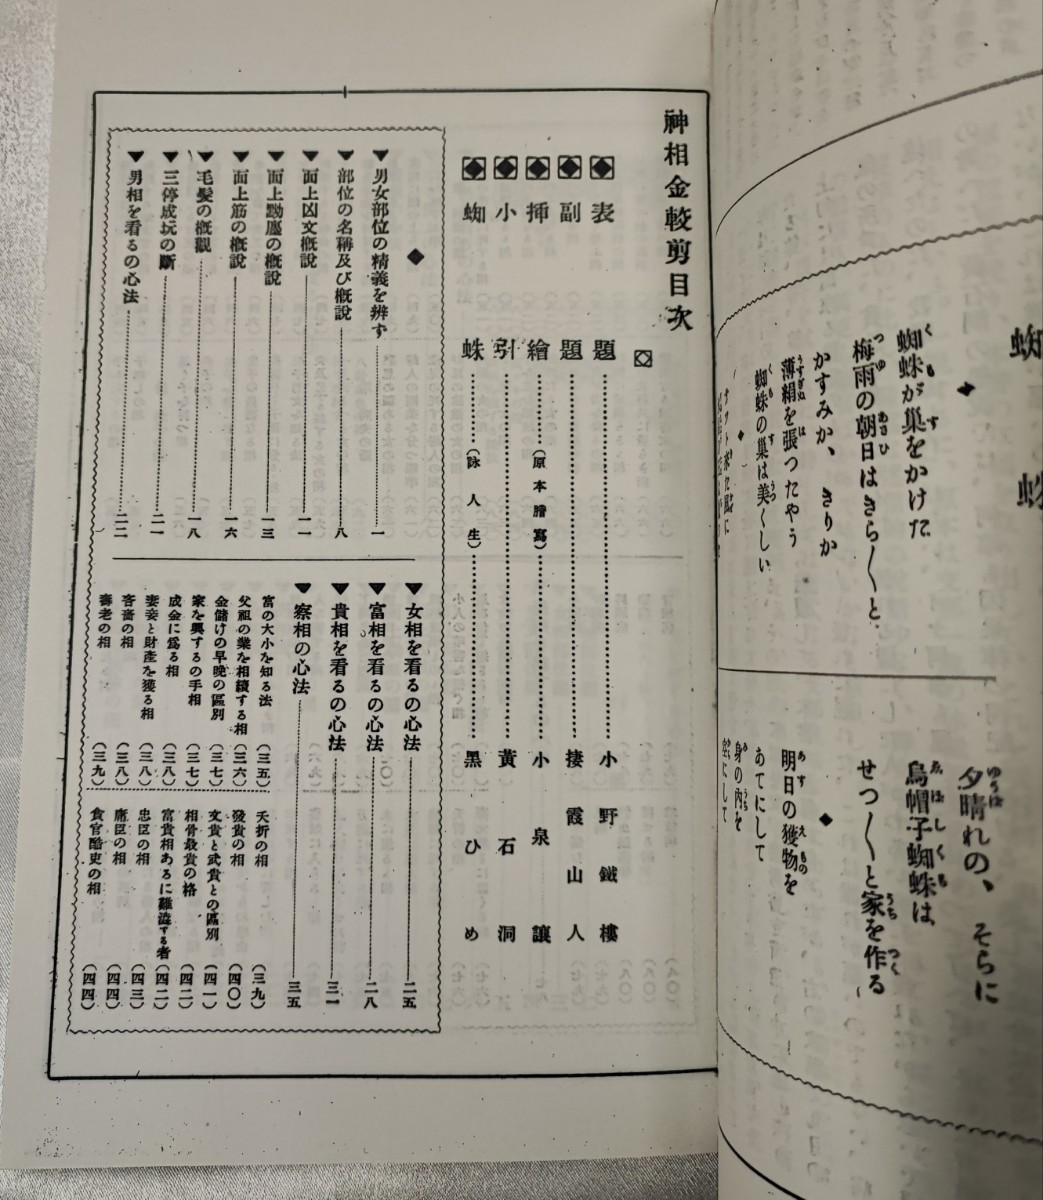 蜘
蛛
蜘蛛が巣をかけた
梅雨の朝日はきら〳〵と
かすみか、きりか
薄絹を張つたやう
蜘蛛の巣は美くしい
夕晴れの、そらに
烏帽子蜘蛛は、
せつ〳〵と家を作る
明日の獲物を
あてにして
身の内を
空にして
神相金較剪目次
表題……小野鐵樓
副題……捿霞山人
挿繪……(原本謄寫)……小泉讓
小引……黃石洞
蜘蛛……(詠人生)……黑ひめ
男女部位の精義を辨ず……一
部位の名稱及び槪說……八
面上凶文槪說……一一
面上黝黶の槪說……一三
面上筋の槪說……一六
毛髮の槪觀……一八
三停成玩の斷……二一
男相を看るの心法……二二
女相を看るの心法……二五
富相を看るの心法……二八
貴相を看るの心法……三一
察相の心法……三五
富の大小を知る法……(三五)
父祖の業を相續する相……(三六)
金儲けの早晩の區別……(三七)
家を興するの手相……(三七)
成金に爲る相……(三八)
妻妾と財產を獲る相……(三八)
吝嗇の相……(三八)
壽老の相……(三九)
夭折の相……(三九)
發貴の相……(四〇)
文貴と武貴との區別……(四一)
相骨最貴の格……(四二)
富貴相あるに難澁する者……(四二)
忠臣の相……(四三)
庸臣の相……(四四)
貪官酷吏の相……(四四)